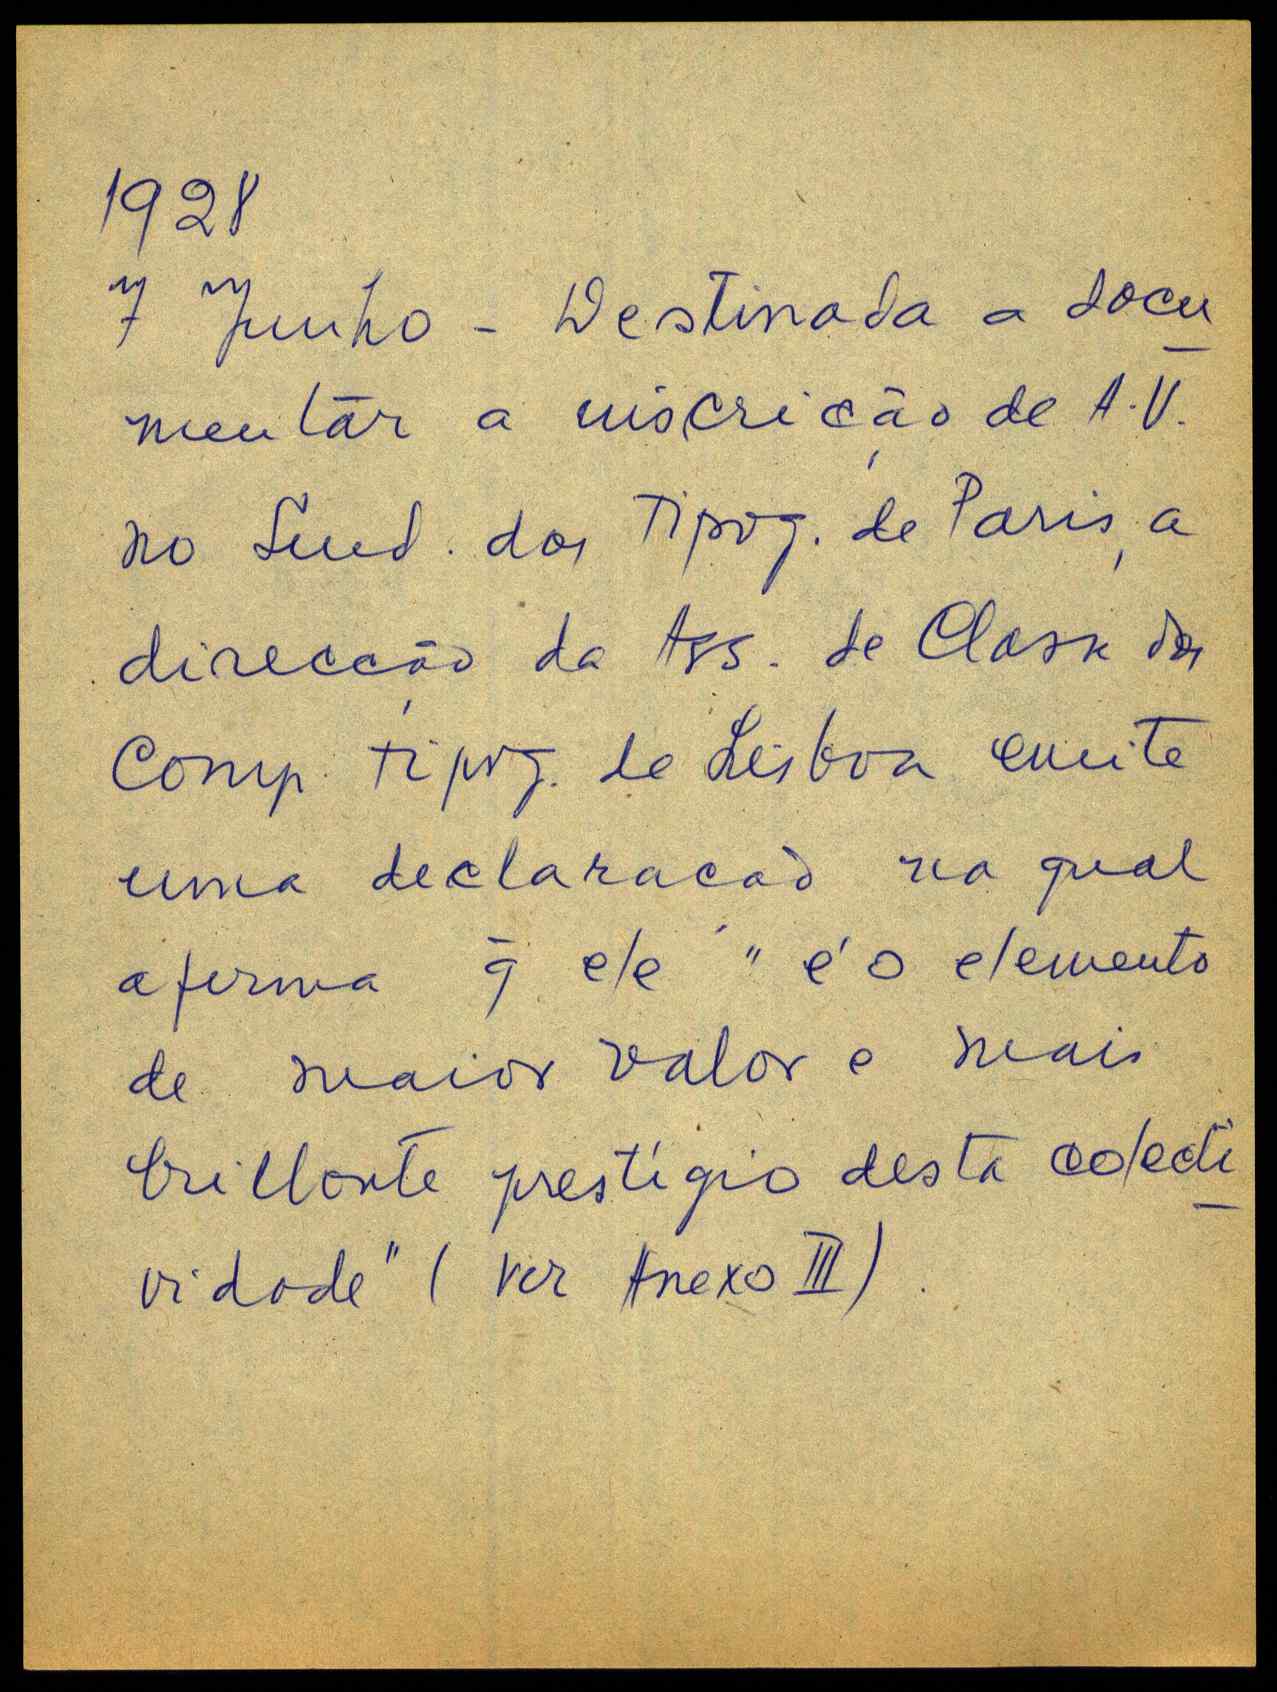 1928
7 Junho - Destinada a docu
mentar a inscrição de A.V.
no Sind. dos Tipog. de Paris, a
direcção da Ass. de Classe dos
Comp. tipog. de Lisboa emite
uma declaracaõ na qual
afirma q̄ ele "é o elemento
de maior valor e mais
brilhante prestígio desta colecti
vidade" (Ver Anexo III).